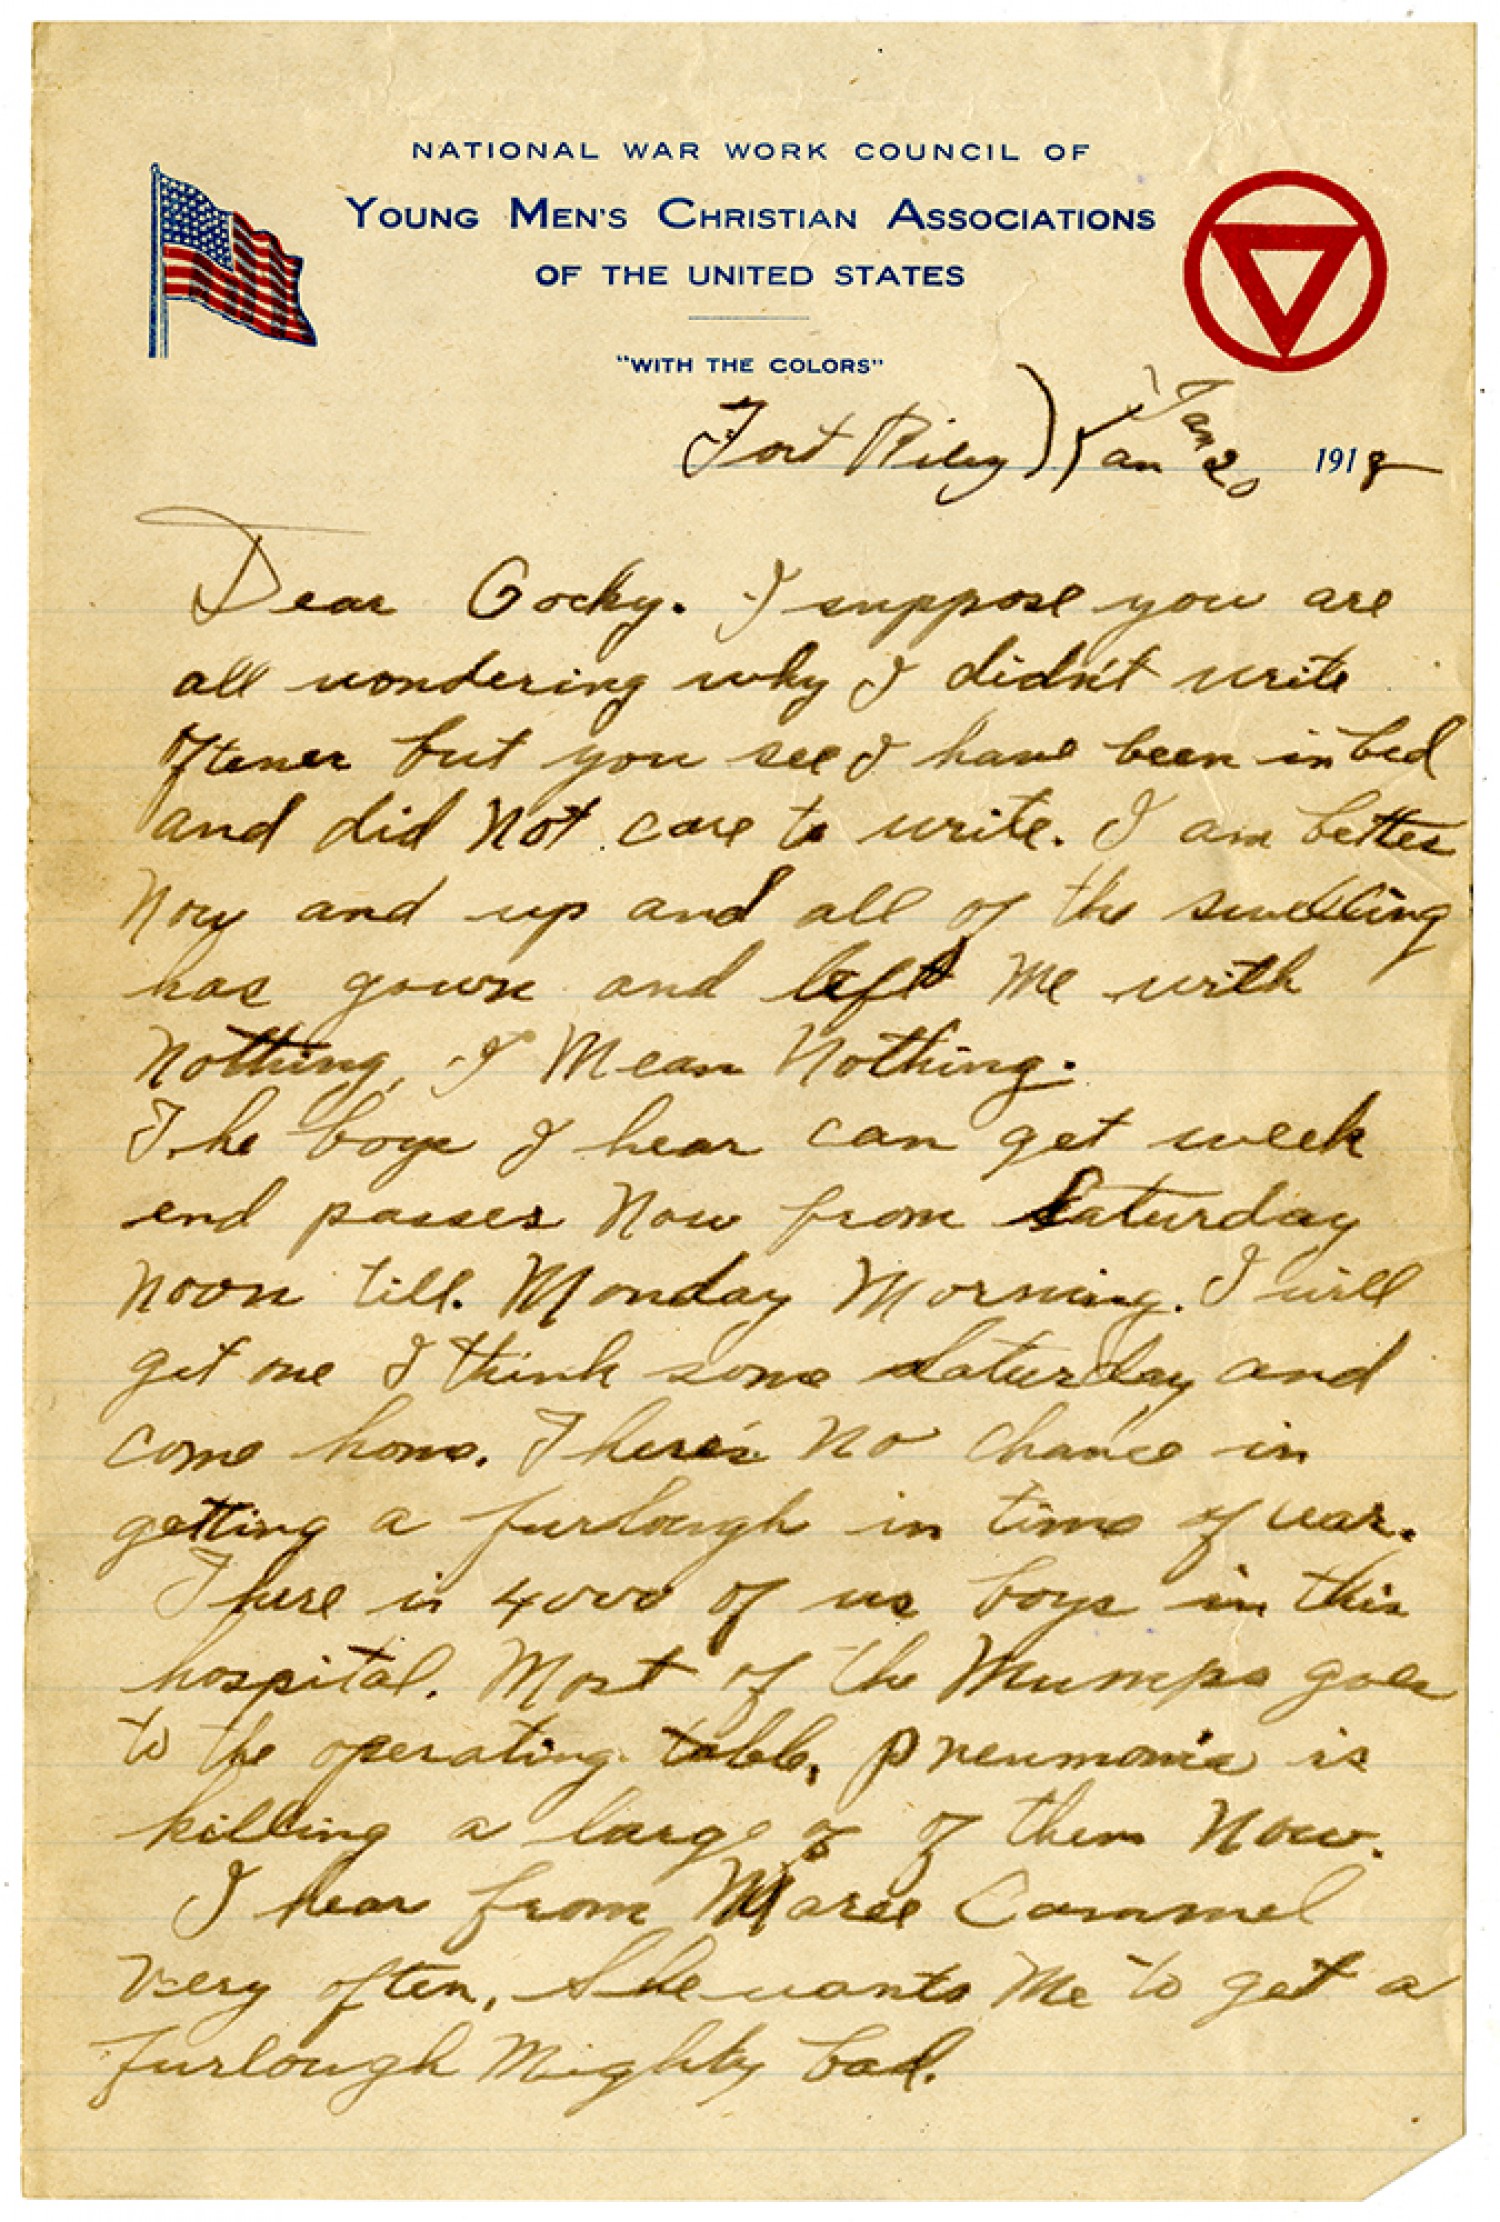 NATIONAL WAR WORK COUNCIL OF
YOUNG MEN'S CHRISTIAN ASSOCIATIONS
OF THE UNITED STATES
"WITH THE COLORS"
Fort Riley) Kan Jan 20 1918
Dear Gocky. I suppose you are
all wondering why I didn't write
oftener but you see I have been in bed
and did Not care to write. I am better
Now and up and all of the swelling
has gown and left Me with
Nothing, I Mean Nothing.
The boys I hear can get week
end passes Now from Saturday
Noon till. Monday Morning. I will
get one I think some Saturday and
come home. There's No chance in
getting a furlough in time of war.
There is 4000 of us boys in this
hospital. Most of the Mumps goes
to the operating table, pneumonia is
killing a large of of them Now.
I hear from Marie Cammel
Very often, She wants Me to get a
furlough Mighty bad.